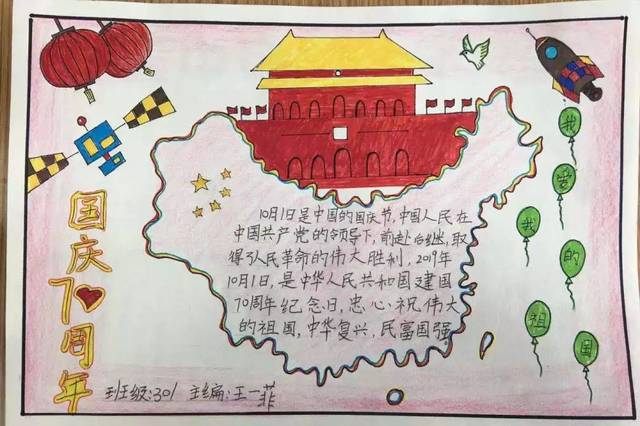 国庆70周年
10月1日是中国的国庆节,中国人民在
中国共产党的领导下,前赴后继,取
得了人民革命的伟大胜利.2019年
10月1日,是中华人民共和国建国
70周年纪念日,忠心祝伟大
的祖国,中华复兴,民富国强.
我爱我的祖国
班级:301 主编:王一菲